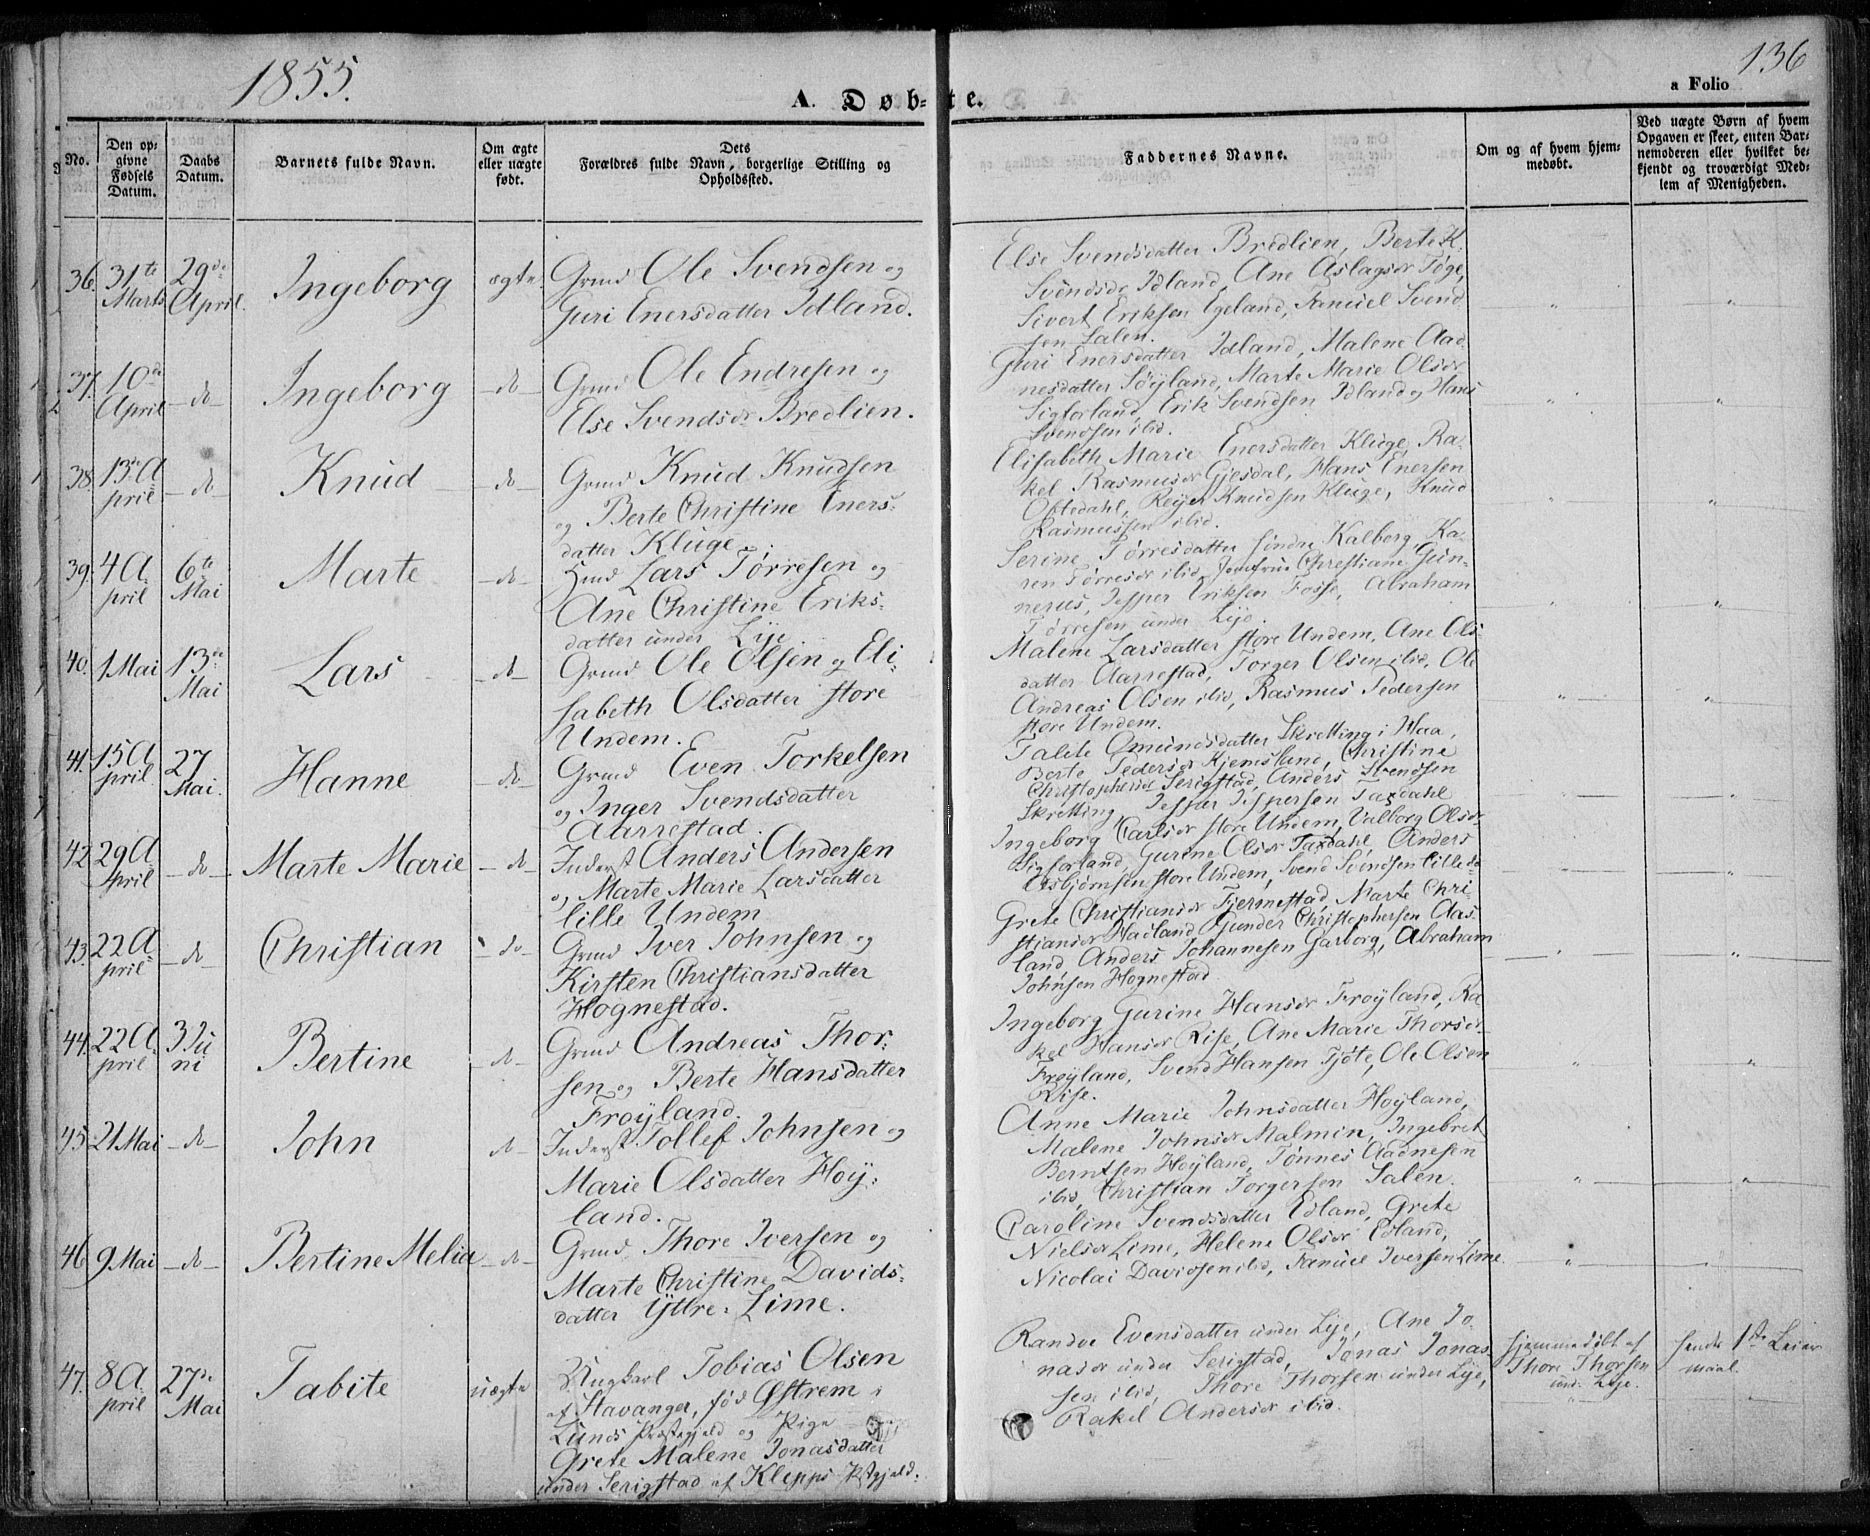 1855.
136
a Folio
A. Døb- te.
No.
Den op-
givne
Fødsels
Datum.
Daabs
Datum.
Barnets fulde Navn.
Om ægte
eller uægte
født.
Dets
Forældres fulde Navn, borgerlige Stilling og
Opholdssted.
Faddernes Navne.
Om og af hvem hjem-
medøbt.
Ved uægte Børn af hvem
Opgaven er skeet, enten Bar-
nemoderen eller hvilket be-
kjendt og troværdigt Med-
lem af Menigheden.
36. 31te Marts 29de April. Ingeborg ægte
Grmd Ole Svendsen og
Guri Enersdatter Idland.
Else Svendsdatter Bredlien, Berte K.
Svendsdr Idland, Ane Aslagsdr Tøge,
Sivert Eriksen Egeland, Samuel Svend
sen Salen.
37. 10de April -do- Ingeborg -do-
Grmd Ole Endresen og
Else Svendsdr Bredlien.
Guri Enersdatter Idland, Malene Aad
nesdatter Søyland, Marte Marie Olsdr
Sigforland, Erik Svendsen Idland og Hans
Svendsen ibid.
38. 13de A
pril -do- Knud -do-
Grmd Knud Knudsen
og Berte Christine Eners-
datter Kluge.
Elisabeth Marie Enersdatter Kluge, Ra-
kel Rasmusdr Gjesdal, Hans Enersen
Oftedahl, Reier Knudsen Kluge, Knud
Rasmussen ibid.
39. 4 A
pril 6te Mai Marte -do-
Hmd Lars Tørresen og
Ane Christine Eriks-
datter under Lye.
Serine Tørresdatter søndre Kalberg, Ka-
ren Tørresdr ibid, Jomfrue Christiane Gun-
nerus, Jesper Eriksen Fosse, Abraham
Tørresen under Lye.
40. 1 Mai 13de Mai Lars -do-
Grmd Ole Olsen og Eli-
sabeth Olsdatter store
Undem.
Malene Larsdatter store Undem, Ane Ols-
datter Aarrestad, Torger Olsen ibid, Ole
Andreas Olsen ibid, Rasmus Pedersen
store Undem.
41. 15 A
pril 27 Mai. Hanne -do-
Grmd Even Torkelsen
og Inger Svendsdatter
Aarrestad.
Talete Omundsdatter Skretting i Haa,
Berte Pedersdr Kjemsland, Christine
Christophersdr Serigstad, Anders Svendsen
Skretting, Jesper Jespersen Taxdahl
42. 29 A
pril -do- Marte Marie -do-
Inderst Anders Andersen
og Marte Marie Larsdatter
lille Undem
Ingeborg Carlsdr store Undem, Valborg Olsdr
Sigforland, Gurine Olsdr Taxdahl, Anders
Asbjørnsen store Undem, Svend Svendsen lille do
43. 22 A
pril -do- Christian -do-
Grmd Iver Johnsen og
Kirsten Christiansdatter
Hognestad.
Grete Christiansdr Tjermestad, Marte Chri-
stiansdr Hadland, Gunder Christophersen Aas-
land, Anders Johannesen Garborg, Abraham
Johnsen Hognestad
44. 22 A
pril 3 Ju
ni Bertine -do-
Grmd Andreas Thor-
sen og Berte Hansdatter
Frøyland.
Ingeborg Gurine Hansdr Frøyland, Ra
kel Hansdr Rise, Ane Marie Thorsdr
Frøyland, Svend Hansen Tjøte, Ole Olsen
Rise.
45. 21 Mai -do- John do-
Inderst Tollef Johnsen og
Marie Olsdatter Høy-
land.
Anne Marie Johnsdatter Høyland,
Malene Johnsdr Malmin, Ingebret
Berntsen Høyland, Tønnes Aadnesen
ibid, Christian Torgersen Salen.
46 9 Mai -do- Bertine Melia -do-
Grmd. Thore Iversen og
Marte Christine Davids-
datter Yttre-Lime.
Caroline Svendsdatter Edland, Grete
Nielsdr Lime, Helene Olsdr Edland,
Nicolai Davidsen ibid, Samuel Iversen Lime.
47. 8 A
pril 27de Mai Tabite uægte
Ungkarl Tobias Olsen
af Stavanger, fød Østrem i
Lunds Præstegjeld og Pige
Grete Malene Jonasdatter
under Serigstad af Klepps Pstgjeld.
Randve Evensdatter under Lye, Ane Jo-
nasdr under Serigstad, Jonas Jonas
sen ibid, Thore Thorsen under Lye,
Rakel Andersdr ibid.
hjemmedøbt af
Thore Thorsen
und. Lye.
hendes 1ste Leier
maal